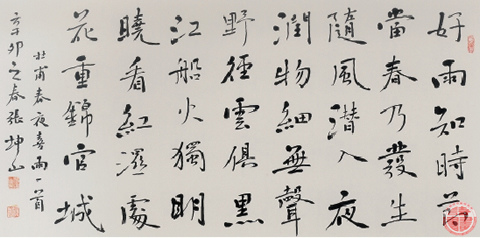 好雨知時節
當春乃發生
隨風潛入夜
潤物細無聲
野徑雲俱黑
江船火獨明
曉看紅濕處
花重錦官城
杜甫春夜喜雨一首
辛卯之春張坤山